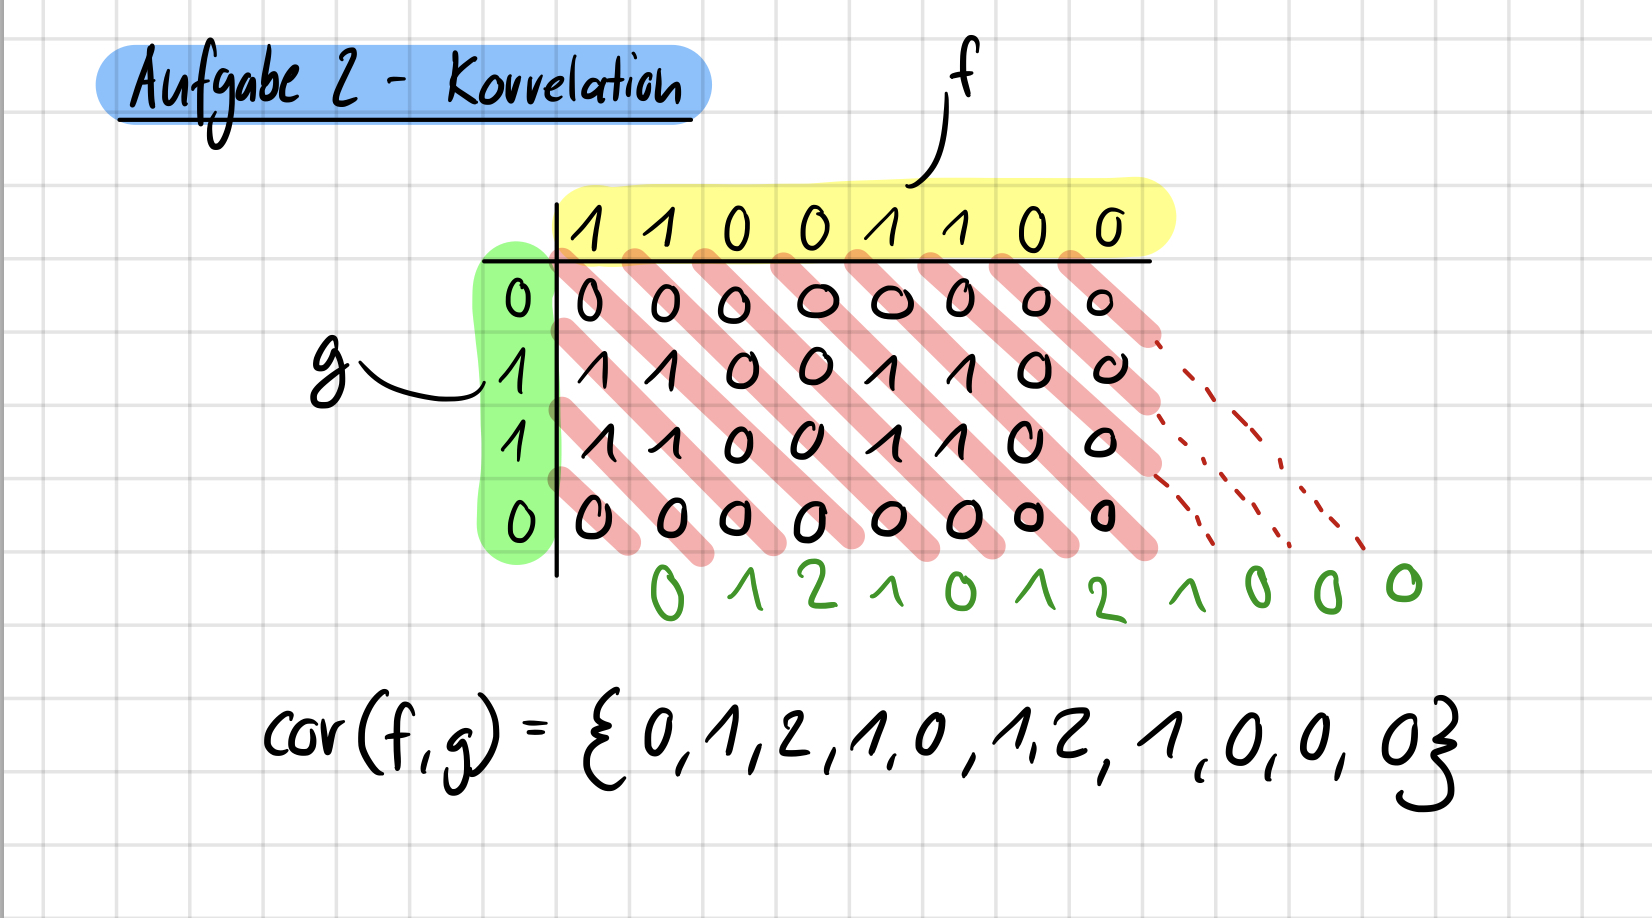 Aufgabe 2 - Korrelation
f
1 1 0 0 1 1 0 0
0 0 0 0 0 0 0 0 0
g
1 1 1 0 0 1 1 0 0
1 1 1 0 0 1 1 0 0
0 0 0 0 0 0 0 0 0
0 1 2 1 0 1 2 1 0 0 0
cor(f,g) = {0,1,2,1,0,1,2,1,0,0,0}